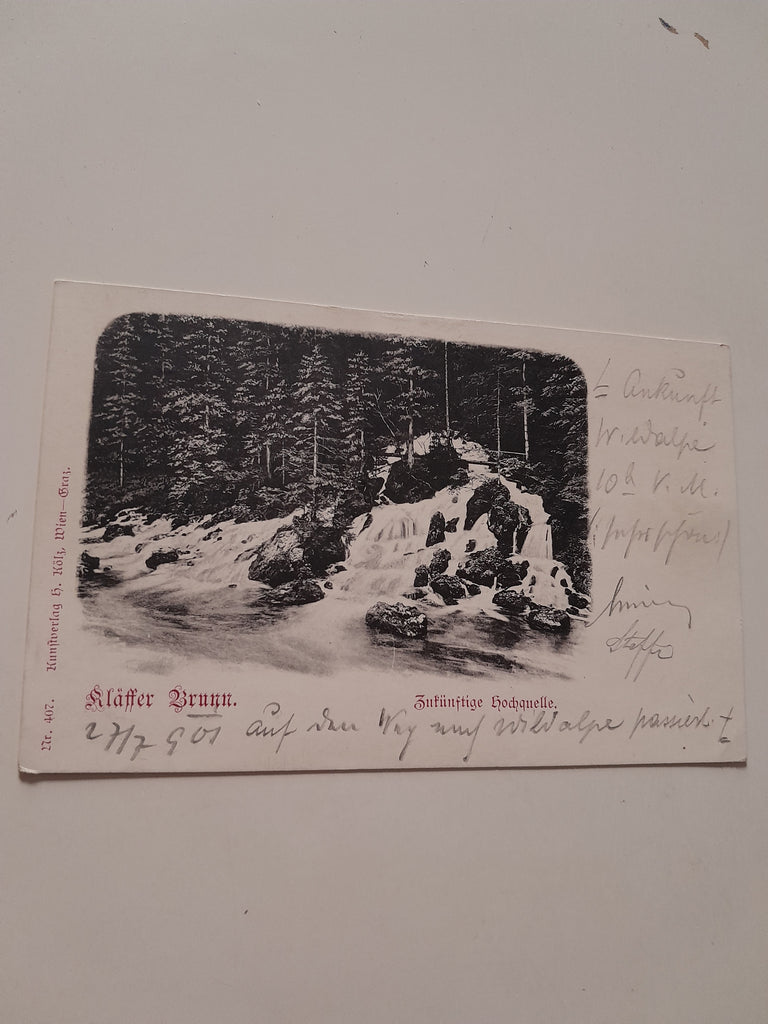 ± Ankunft
Wildalpe
10h V. M.
(sehr schön!)
Steffi
Kläffer Brunn.
Zukünftige Hochquelle.
27/7 901 auf den Weg nach Wildalpe passiert ±
Nr. 407. Kunstverlag H. Kölz, Wien—Graz.